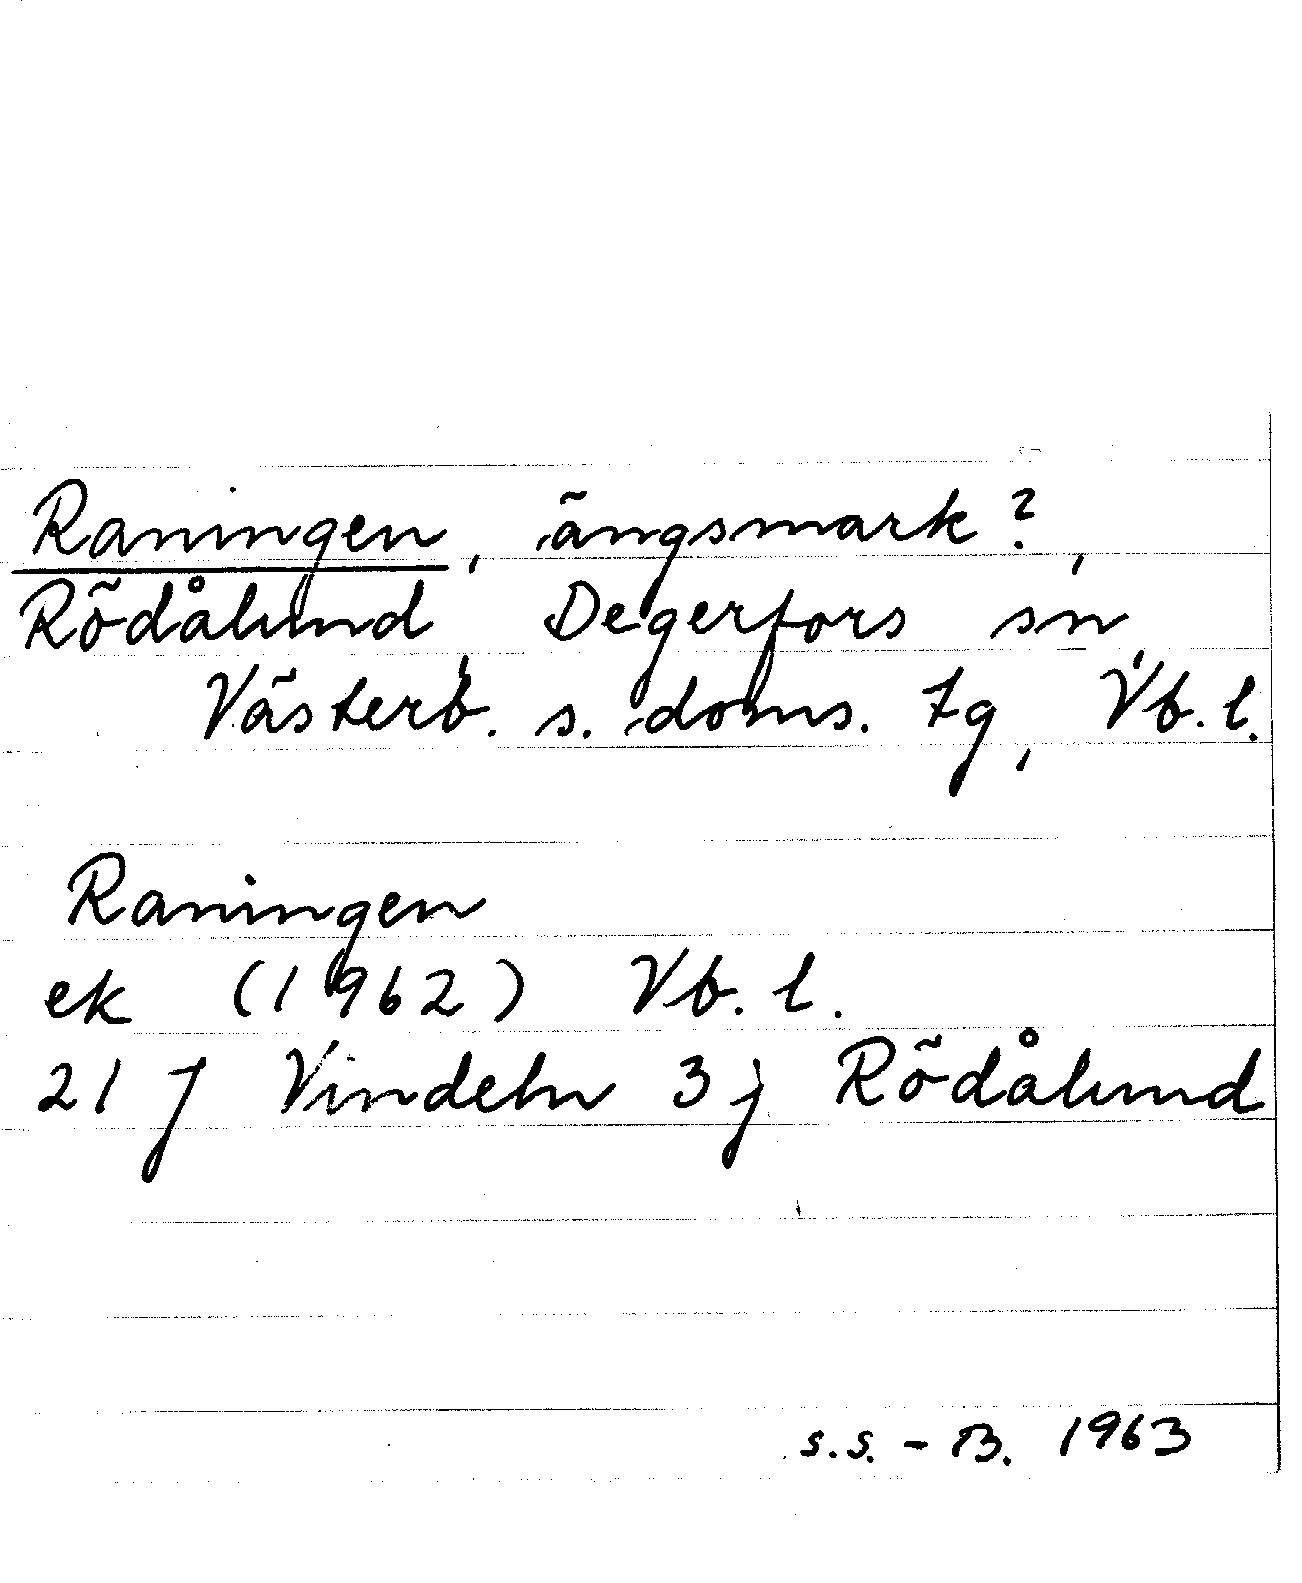 Raningen, ängsmark?,
Rödålund, Degerfors sn,
Västerb. s. doms. tg, Vb. l.
Raningen
ek (1962) Vb. l.
21 J Vindeln 3 j Rödålund
s.s. - B. 1963